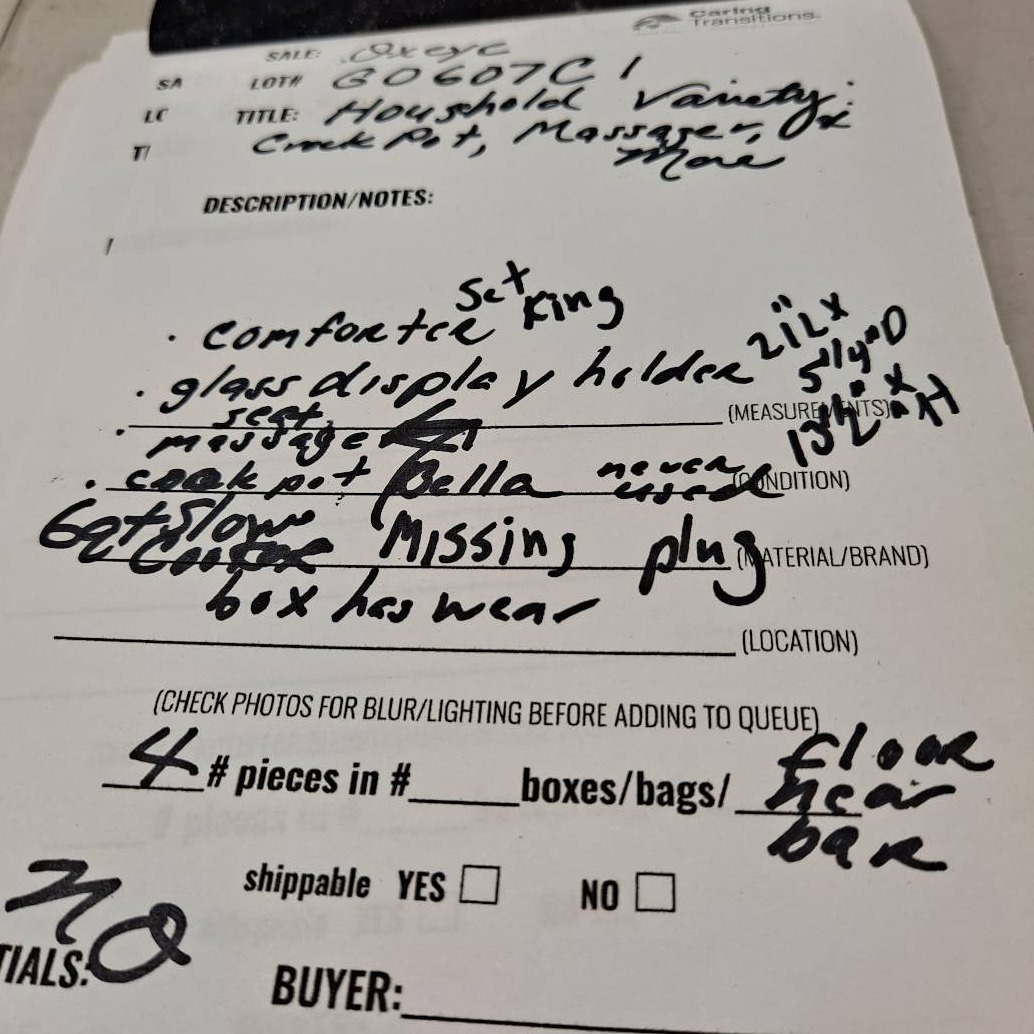 Caring
Transitions.
SALE: Oxeye
SA LOT# G0607C1
LC TITLE: Household Variety:
T/ Crock Pot, Massager, &
More
DESCRIPTION/NOTES:
set
· comforter King
· glass display holder 21"L x
5 1/4"D x
(MEASUREMENTS) 13 1/2"H
· seat
massage
· cook pot Bella never used (CONDITION)
6qt slow cooker Missing plug (MATERIAL/BRAND)
box has wear
(LOCATION)
(CHECK PHOTOS FOR BLUR/LIGHTING BEFORE ADDING TO QUEUE)
4 # pieces in #____ boxes/bags/ floor
near
bar
shippable YES ☐ NO ☐
TIALS:
BUYER: